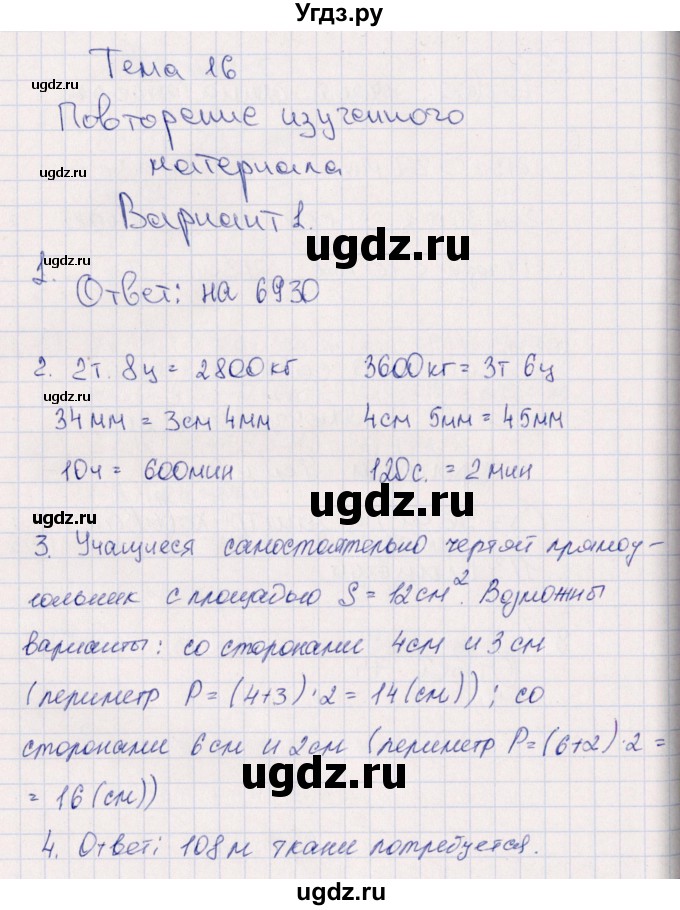 Угдз.ру
ugdz.ru
Тема 16
Повторение изученного
материала
ugdz.ru
Вариант 1.
ugdz.ru
ugdz.ru
1.
Ответ: на 6930
2. 2т. 8ц = 2800кг 3600кг = 3т 6ц
ugdz.ru
34мм = 3см 4мм 4см 5мм = 45мм
10ч = 600мин 120с. = 2мин
ugdz.ru
ugdz.ru
3. Учащиеся самостоятельно чертят прямоу-
гольник с площадью S = 12см². Возможны
варианты: со сторонами 4см и 3см
(периметр P = (4+3)·2 = 14(см)); со
сторонами 6см и 2см (периметр P = (6+2)·2 =
ugdz.ru
= 16(см))
4. Ответ: 108м ткани потребуется.
ugdz.ru